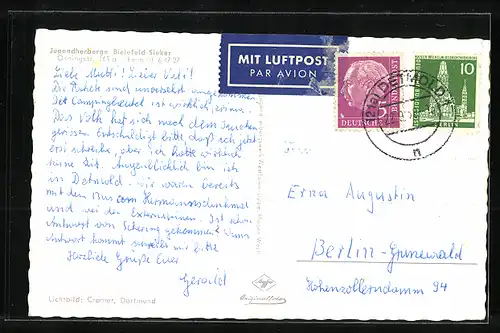 Jugendherberge Bielefeld-Sieker
MIT LUFTPOST
PAR AVION
DEUTSCHE BUNDESPOST
10
BERLIN
DETMOLD
n
Liebe Mutti! Lieber Vati!
Die Pakete sind unversehrt angekommen.
Der Campingbeutel ist wirklich prima.
Das Volk hat sich nach dem
Entschuldigt bitte daß ich jetzt
erst schreibe, aber ich hatte wirklich
keine Zeit. Augenblicklich bin ich
in Detmold - wir waren bereits
mit dem Bus zum Hermannsdenkmal
und bei den Externsteinen. Ist schon
Antwort von Schering gekommen? Wenn
Antwort kommt
Herzliche Grüße Euer
Gerald
Erna Augustin
Berlin-Grunewald
Hohenzollerndamm 94
Lichtbild: Cramer, Dortmund
Agfa